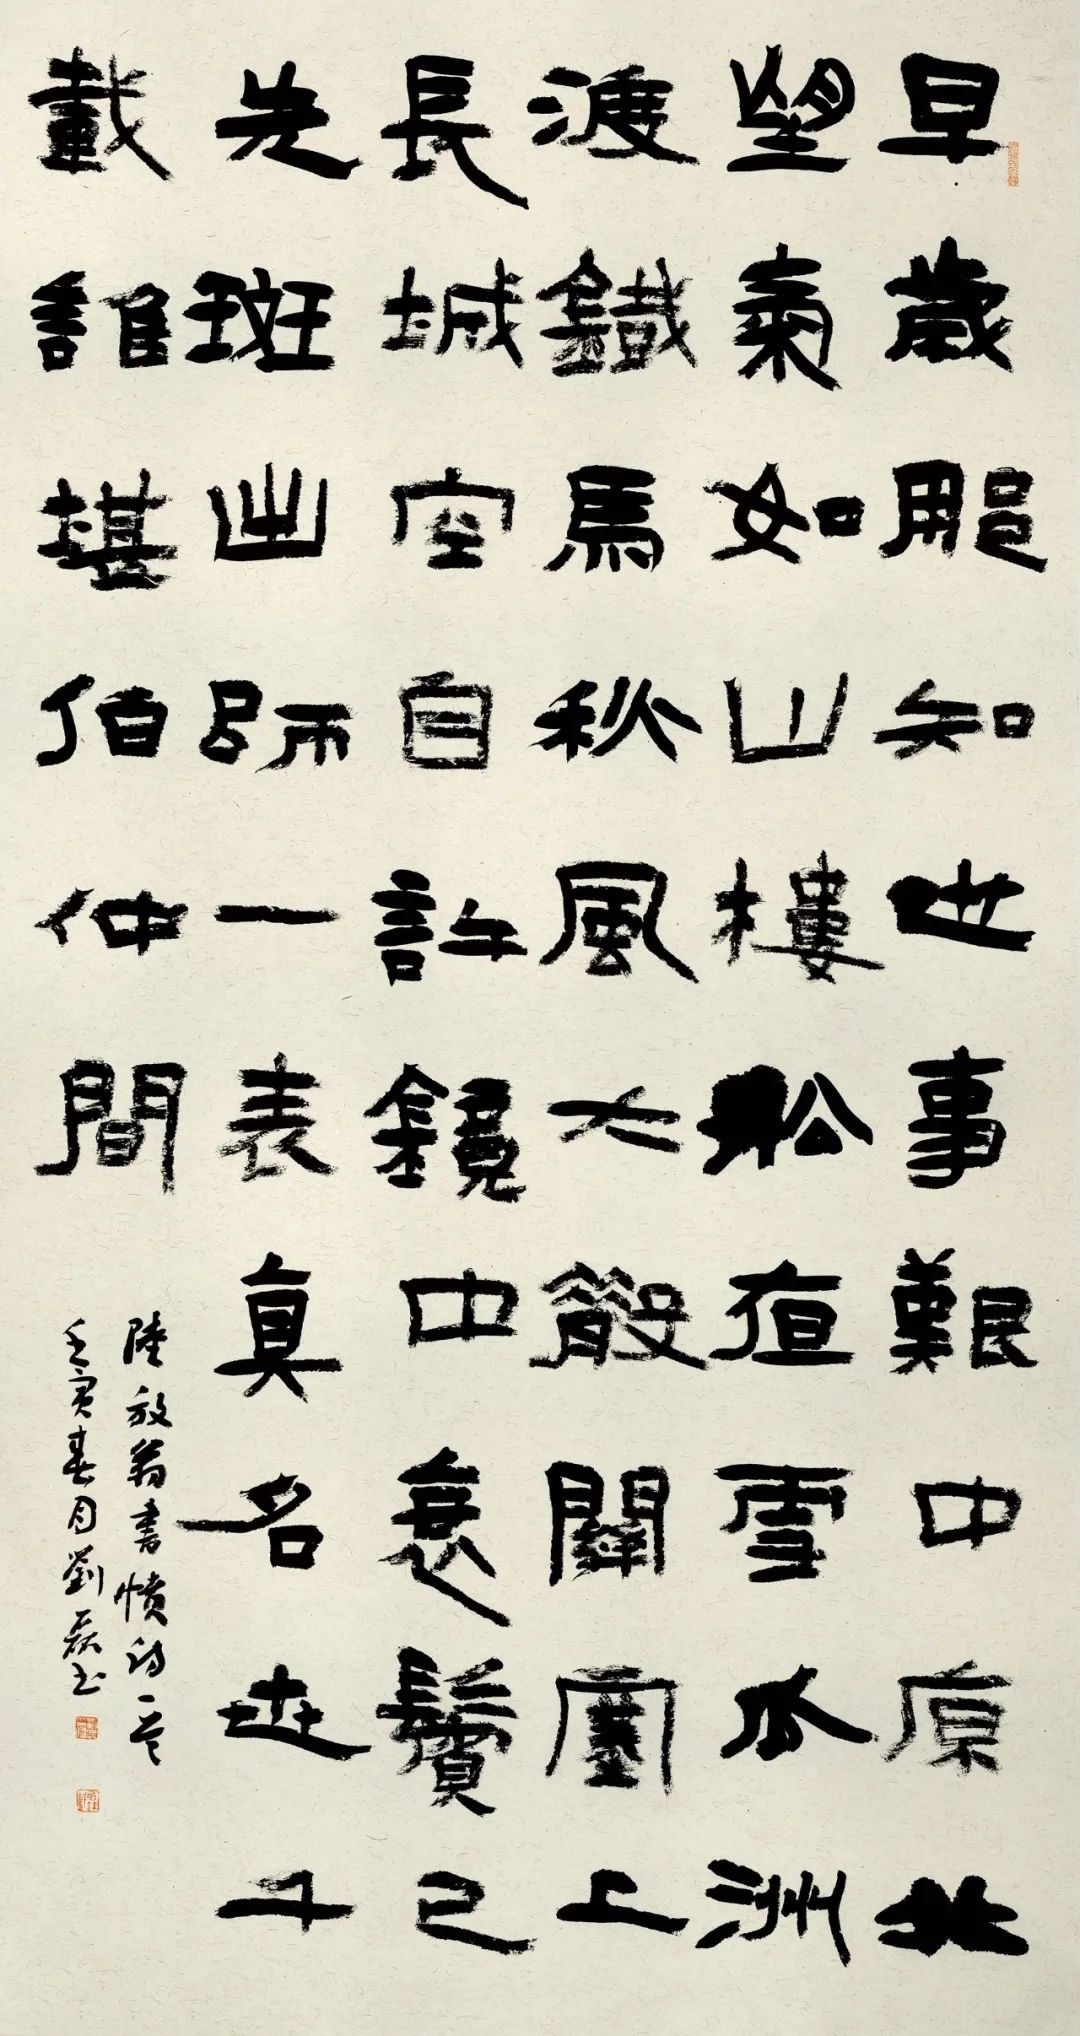 早歲那知世事艱中原北
望氣如山樓船夜雪瓜洲
渡鐵馬秋風大散關塞上
長城空自許鏡中衰鬢已
先斑出師一表真名世千
載誰堪伯仲間
陸放翁書憤詩一首
壬寅春月劉磊书